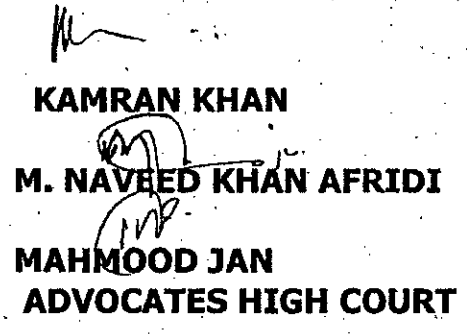 KAMRAN KHAN
M. NAVEED KHAN AFRIDI
MAHMOOD JAN
ADVOCATES HIGH COURT